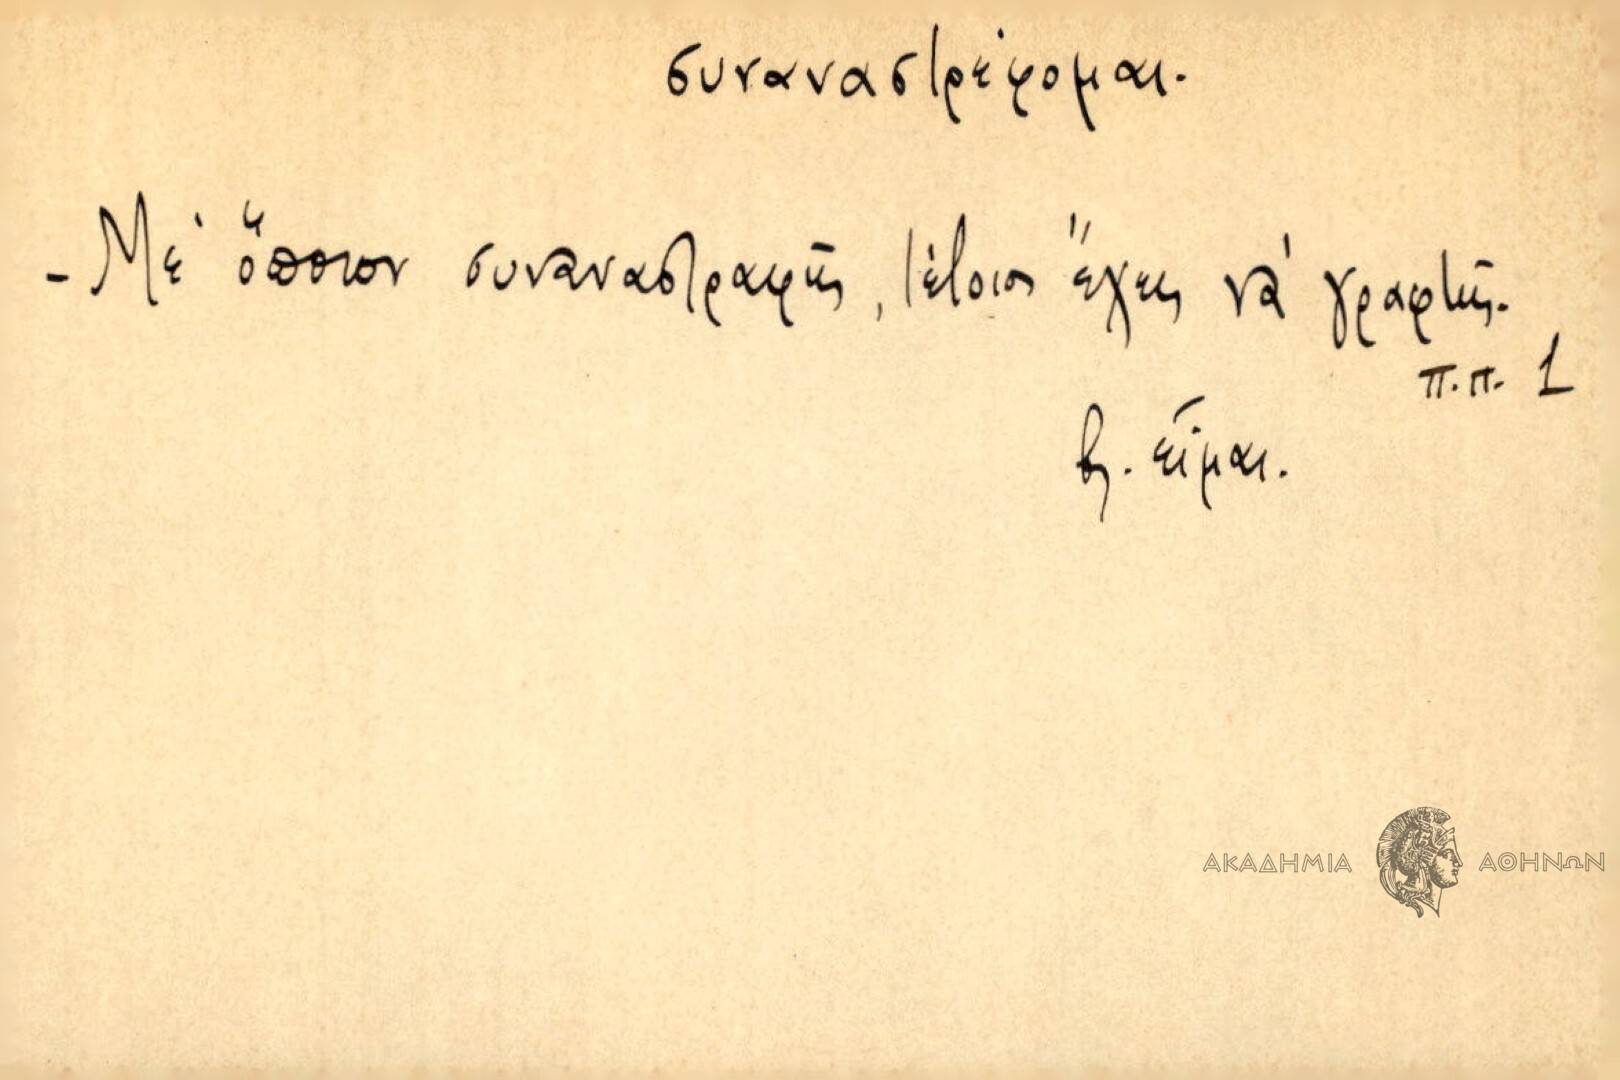 συναναστρέφομαι.
- Μὲ ὅποιον συναναστραφῇς, τέτοιος ἔχεις νὰ γραφτῇς.
π.π. 1
βλ. εἶμαι.
ΑΚΑΔΗΜΙΑ ΑΘΗΝΩΝ